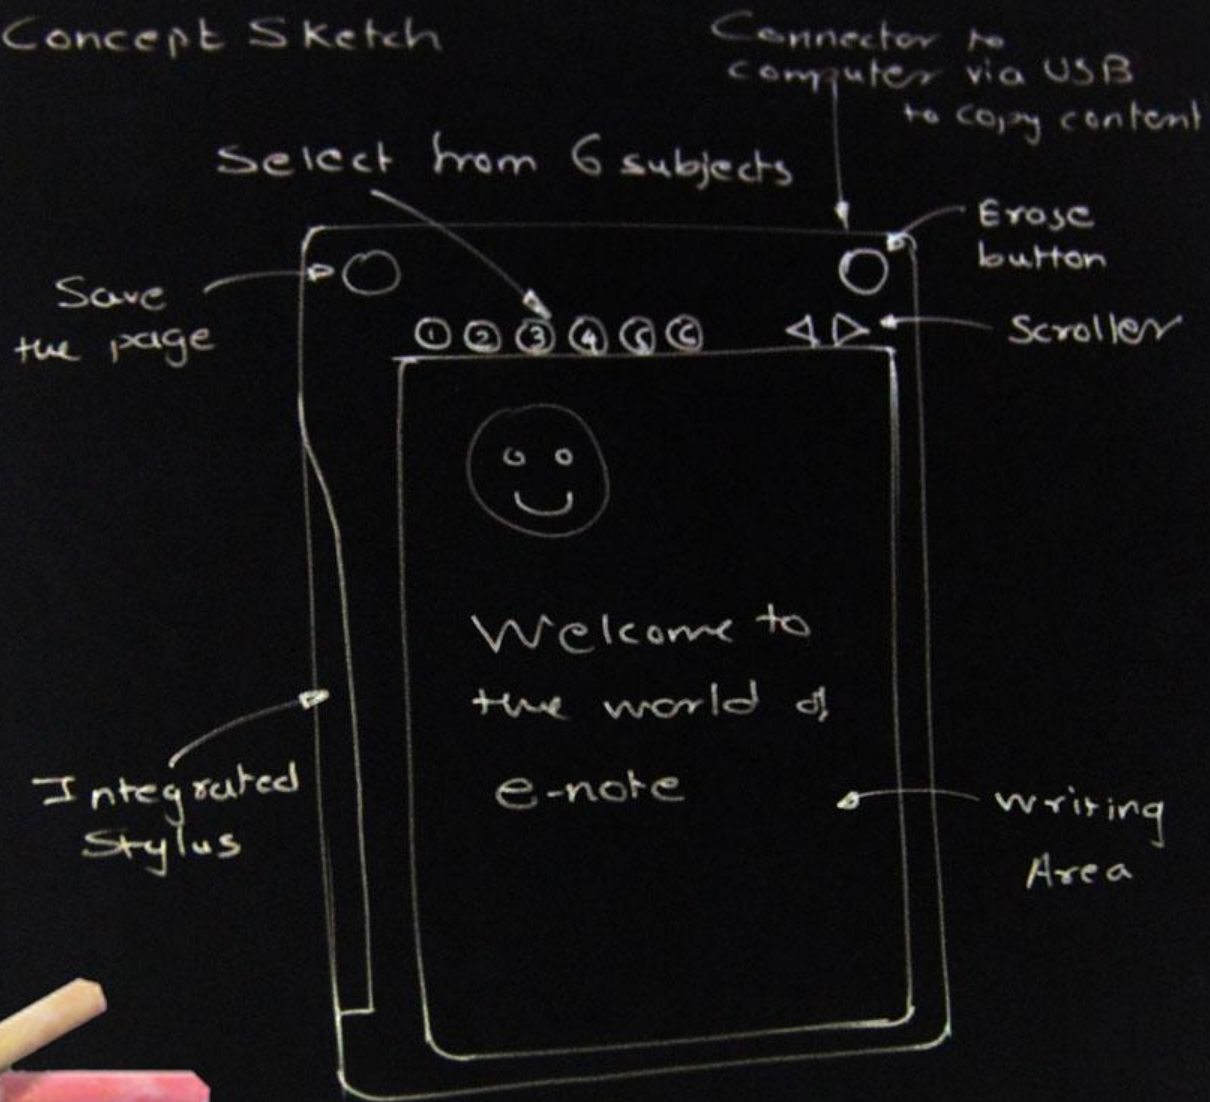 Concept Sketch
Connector to
computer via USB
to copy content
Select from 6 subjects
Erase
button
Save
the page
Scroller
1 2 3 4 5 6
Welcome to
the world of
e-note
Integrated
Stylus
Writing
Area